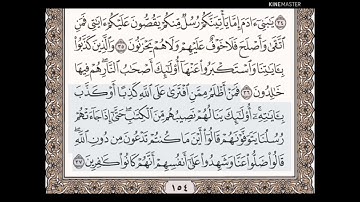 KINEMASTER
يَٰبَنِىٓ ءَادَمَ إِمَّا يَأْتِيَنَّكُمْ رُسُلٌ مِّنكُمْ يَقُصُّونَ عَلَيْكُمْ ءَايَٰتِى فَمَنِ
ٱتَّقَىٰ وَأَصْلَحَ فَلَا خَوْفٌ عَلَيْهِمْ وَلَا هُمْ يَحْزَنُونَ ٣٥ وَٱلَّذِينَ كَذَّبُوا۟
بِـَٔايَٰتِنَا وَٱسْتَكْبَرُوا۟ عَنْهَآ أُو۟لَٰٓئِكَ أَصْحَٰبُ ٱلنَّارِ هُمْ فِيهَا
خَٰلِدُونَ ٣٦ فَمَنْ أَظْلَمُ مِمَّنِ ٱفْتَرَىٰ عَلَى ٱللَّهِ كَذِبًا أَوْ كَذَّبَ
بِـَٔايَٰتِهِۦٓ أُو۟لَٰٓئِكَ يَنَالُهُمْ نَصِيبُهُم مِّنَ ٱلْكِتَٰبِ حَتَّىٰٓ إِذَا جَآءَتْهُمْ
رُسُلُنَا يَتَوَفَّوْنَهُمْ قَالُوٓا۟ أَيْنَ مَا كُنتُمْ تَدْعُونَ مِن دُونِ ٱللَّهِ
قَالُوا۟ ضَلُّوا۟ عَنَّا وَشَهِدُوا۟ عَلَىٰٓ أَنفُسِهِمْ أَنَّهُمْ كَانُوا۟ كَٰفِرِينَ ٣٧
١٥٤